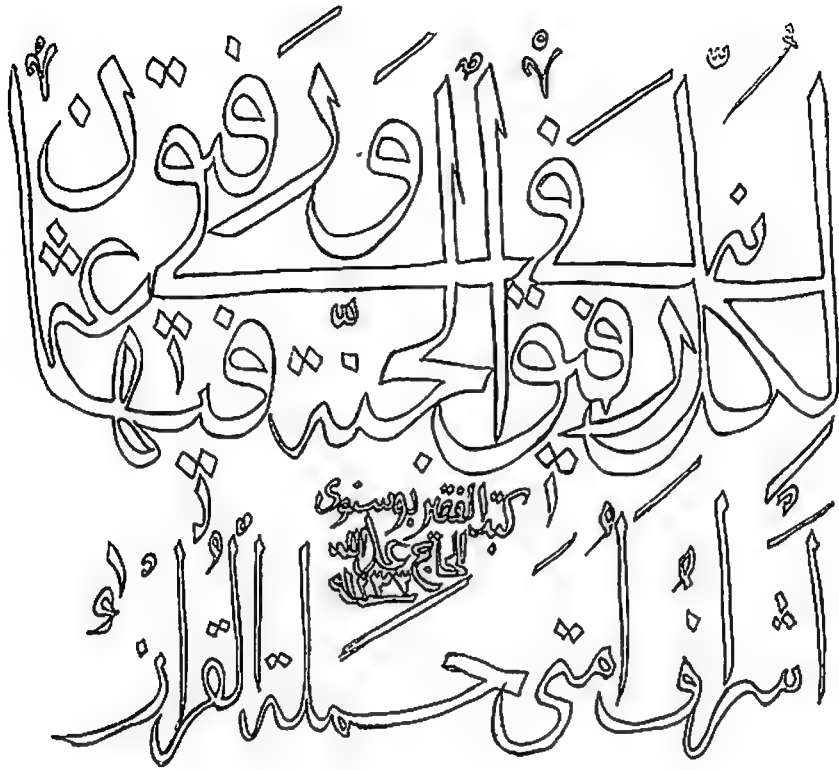 لكل نبي رفيق في الجنة ورفيقي فيها عثمان
كتبه الفقير بوسنوى
الحاج
أشراف أمتي حملة القرآن